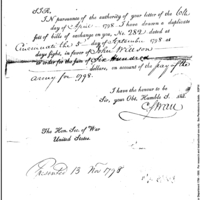 SIR,
IN pursuance of the authority of your letter of the 6th
day of April 1798 I have drawn a duplicate
sett of bills of exchange on you, No. 282, dated at
Cincinnati the 5 day of September 1798 at
days sight, in favor of John Wilson
or order for the sum of Six Hundred
dollars, on account of the pay of the
army for 1798.
I have the honor to be
Sir, your Obt. Humble S
C Swan
The Hon. Sec. of War
United States.
Presented 13 Nov 1798